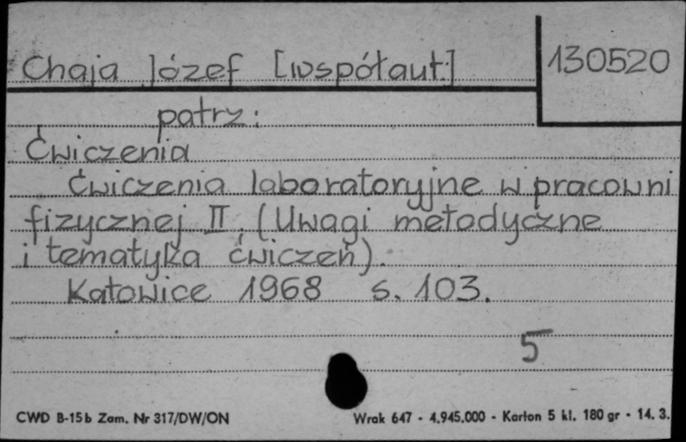 Chaja Józef [współaut.] 130520
patrz:
Ćwiczenia
Ćwiczenia laboratoryjne w pracowni
fizycznej II. (Uwagi metodyczne
i tematyka ćwiczeń).
Katowice 1968 s. 103.
5
CWD B-15b Zam. Nr 317/DW/ON Wrak 647 - 4.945.000 - Karton 5 kl. 180 gr - 14. 3.